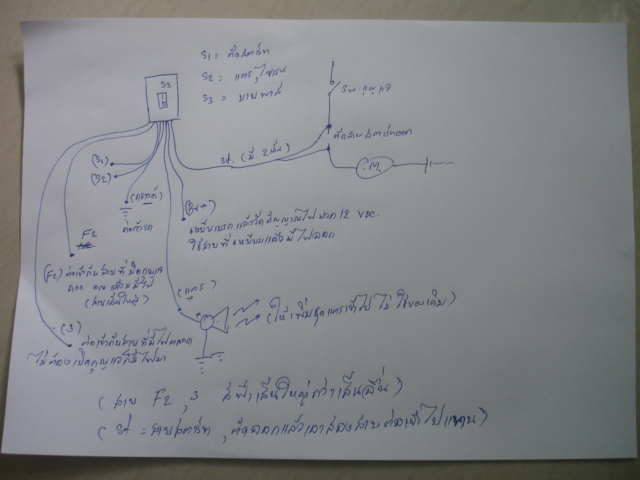 S1 = ตัดสตาร์ท
S2 = แตร, ไซเรน
S3 = บายพาส
S3
Sw. กุญแจ
ตัดสายสตาร์ทออก
St. (มี 2 เส้น)
M
(S1)
(S2)
(กราวด์)
ต่อตัวรถ
(Br+)
เหยียบเบรก แล้ววัดสัญญาณไฟ บวก 12 VDC.
ใช้สายที่เหยียบแล้วมีไฟออก
F2
(F2) ต่อเข้ากับสายที่บิดกุญแจ
(สายเส้นใหญ่)
(แตร)
+
(ให้เพิ่มชุดแตรเข้าไป ไม่ใช้ของเดิม)
(3)
ต่อเข้ากับสายที่มีไฟตลอด
ไม่ต้องเปิดกุญแจก็มีไฟมา
(สาย F2, 3 สีฟ้าเส้นใหญ่กว่าเส้นอื่น)
(St = สายสตาร์ท, ตัดออกแล้วเอาสองสายต่อเข้าไปแทน)